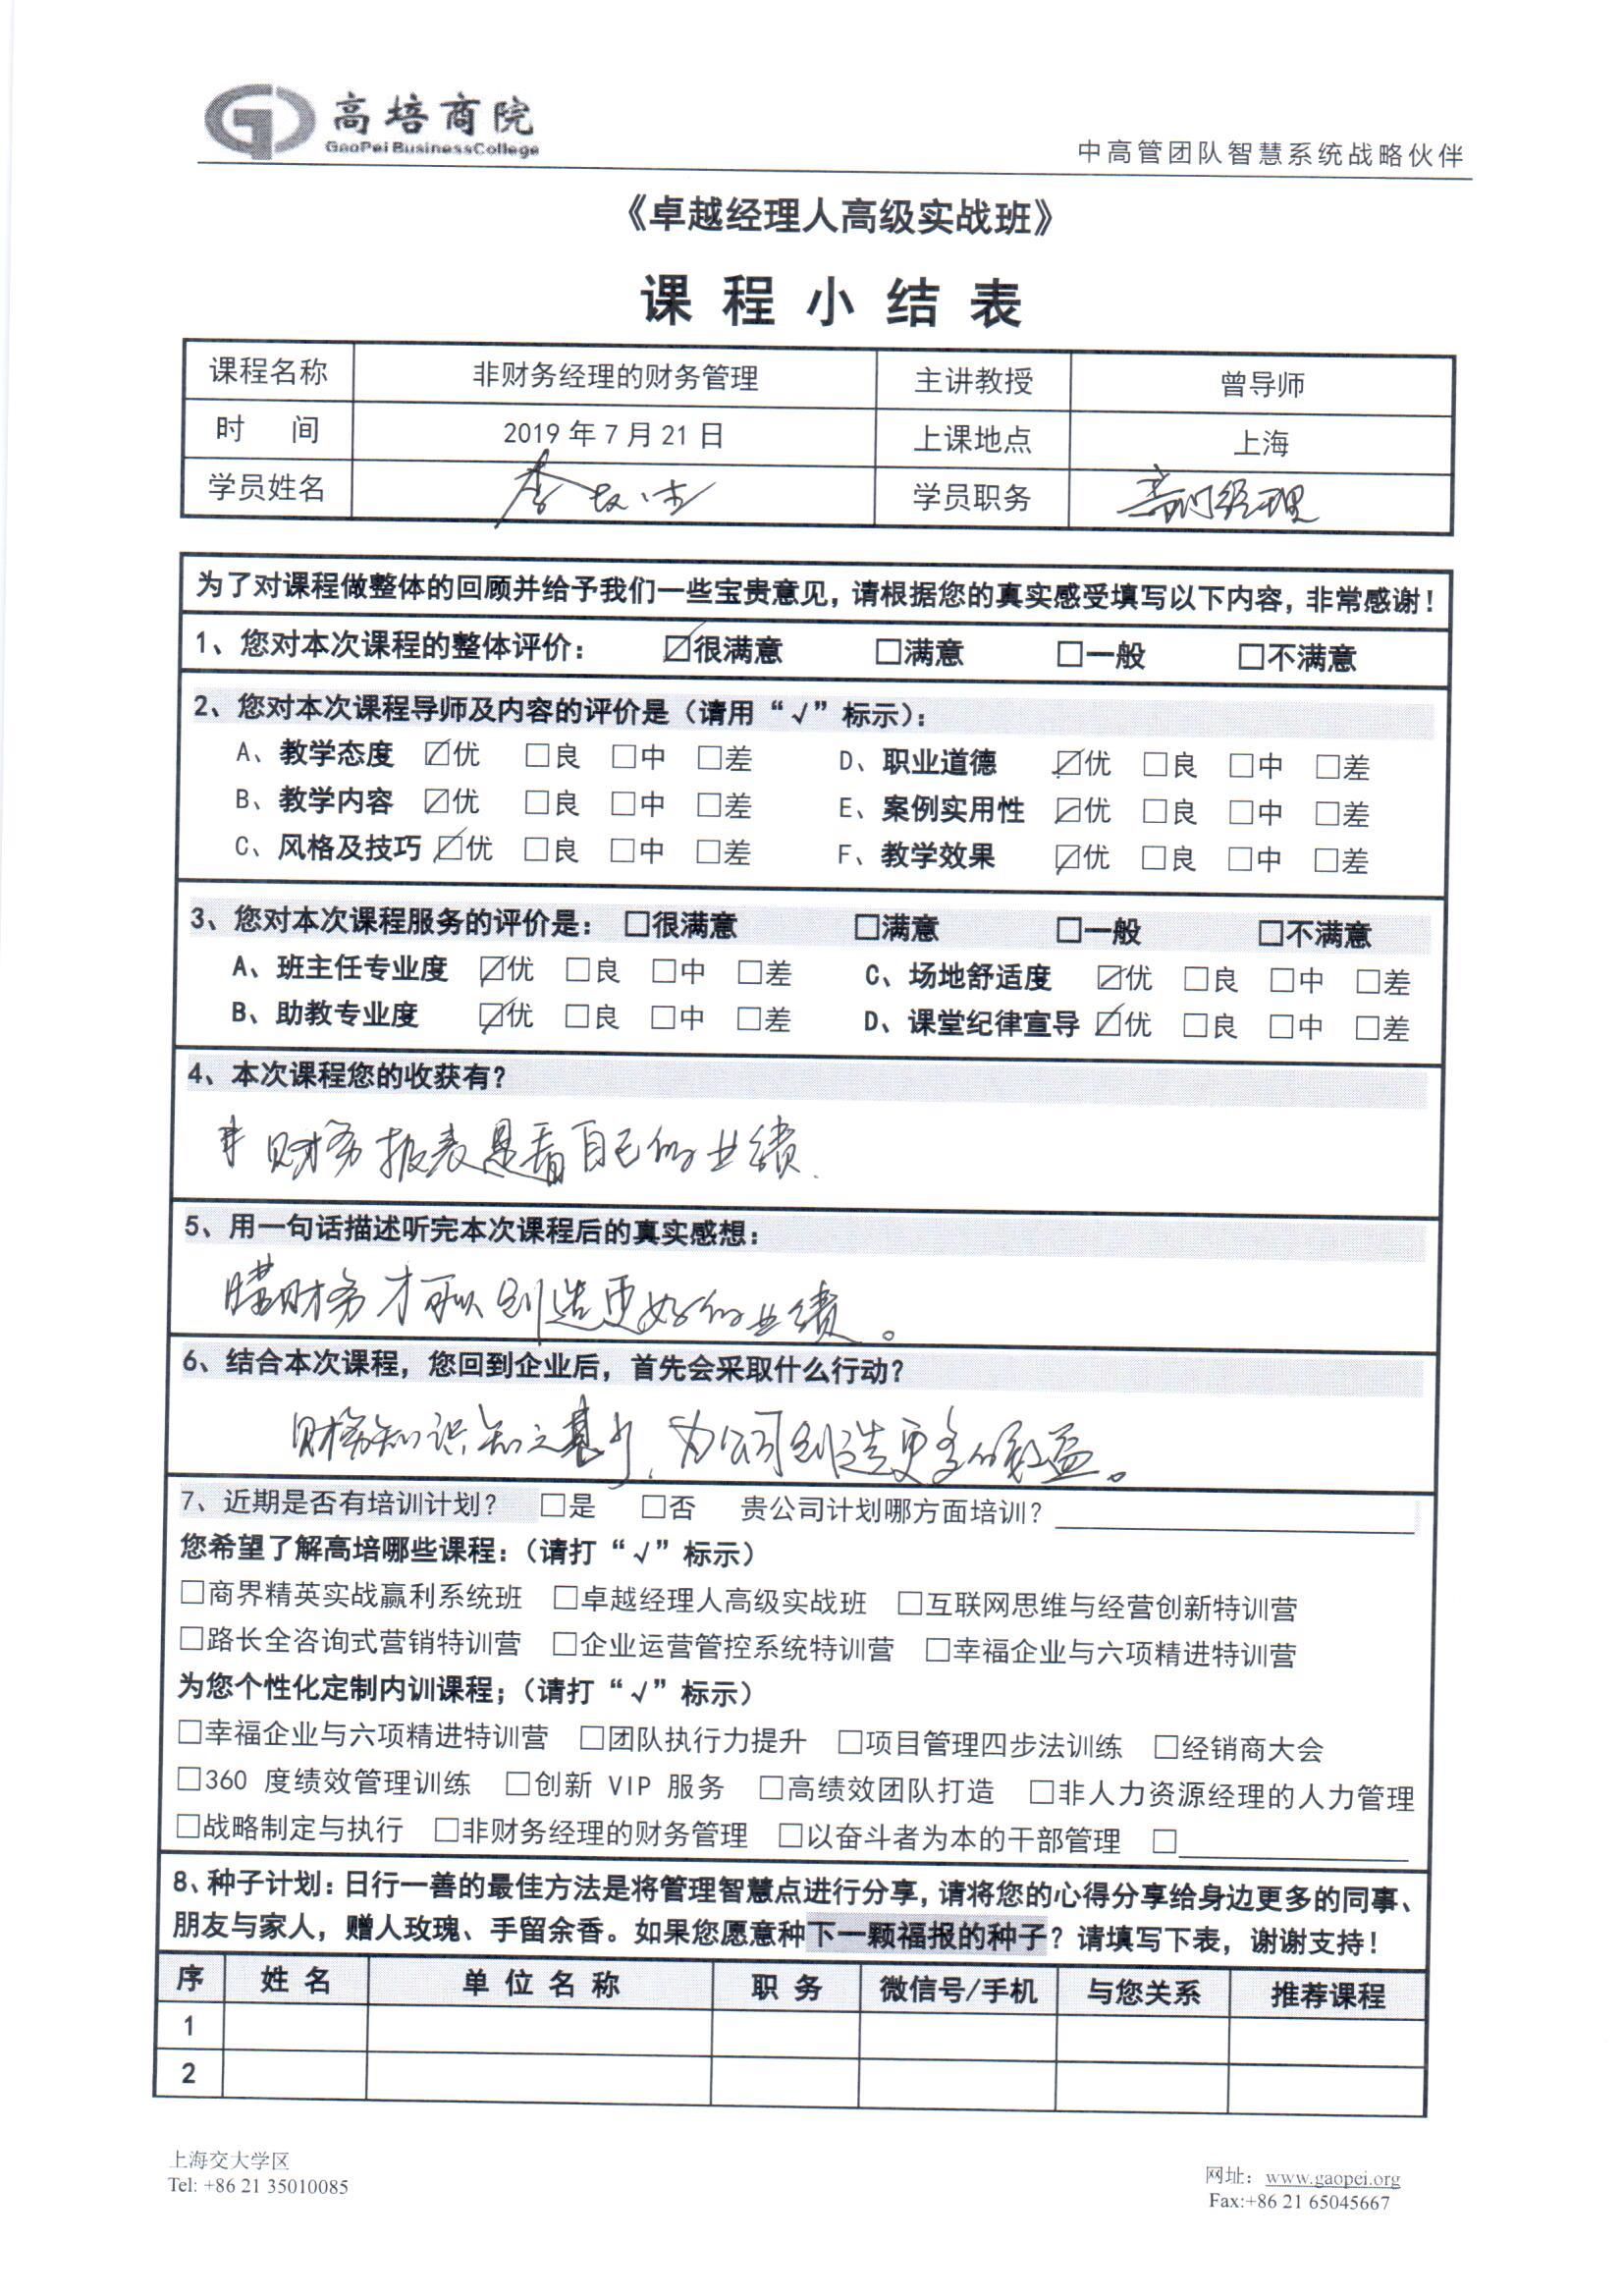 高培商院
GaoPei BusinessCollege
中高管团队智慧系统战略伙伴
《卓越经理人高级实战班》
课程小结表
课程名称 非财务经理的财务管理 主讲教授 曾导师
时 间 2019 年 7 月 21 日 上课地点 上海
学员姓名 李 学员职务 部门经理
为了对课程做整体的回顾并给予我们一些宝贵意见，请根据您的真实感受填写以下内容，非常感谢！
1、您对本次课程的整体评价： ☑很满意 □满意 □一般 □不满意
2、您对本次课程导师及内容的评价是（请用“√”标示）：
A、教学态度 ☑优 □良 □中 □差 D、职业道德 ☑优 □良 □中 □差
B、教学内容 ☑优 □良 □中 □差 E、案例实用性 ☑优 □良 □中 □差
C、风格及技巧 ☑优 □良 □中 □差 F、教学效果 ☑优 □良 □中 □差
3、您对本次课程服务的评价是： □很满意 □满意 □一般 □不满意
A、班主任专业度 ☑优 □良 □中 □差 C、场地舒适度 ☑优 □良 □中 □差
B、助教专业度 ☑优 □良 □中 □差 D、课堂纪律宣导 ☑优 □良 □中 □差
4、本次课程您的收获有？
财务报表是看自己的业绩.
5、用一句话描述听完本次课程后的真实感想：
懂财务才可以创造更好的业绩。
6、结合本次课程，您回到企业后，首先会采取什么行动？
财务知识 为公司创造更多的效益。
7、近期是否有培训计划？ □是 □否 贵公司计划哪方面培训？
您希望了解高培哪些课程：（请打“√”标示）
□商界精英实战赢利系统班 □卓越经理人高级实战班 □互联网思维与经营创新特训营
□路长全咨询式营销特训营 □企业运营管控系统特训营 □幸福企业与六项精进特训营
为您个性化定制内训课程；（请打“√”标示）
□幸福企业与六项精进特训营 □团队执行力提升 □项目管理四步法训练 □经销商大会
□360 度绩效管理训练 □创新 VIP 服务 □高绩效团队打造 □非人力资源经理的人力管理
□战略制定与执行 □非财务经理的财务管理 □以奋斗者为本的干部管理 □
8、种子计划：日行一善的最佳方法是将管理智慧点进行分享，请将您的心得分享给身边更多的同事、
朋友与家人，赠人玫瑰、手留余香。如果您愿意种下一颗福报的种子？请填写下表，谢谢支持！
序 姓 名 单 位 名 称 职 务 微信号/手机 与您关系 推荐课程
1
2
上海交大学区
Tel: +86 21 35010085
网址：www.gaopei.org
Fax:+86 21 65045667